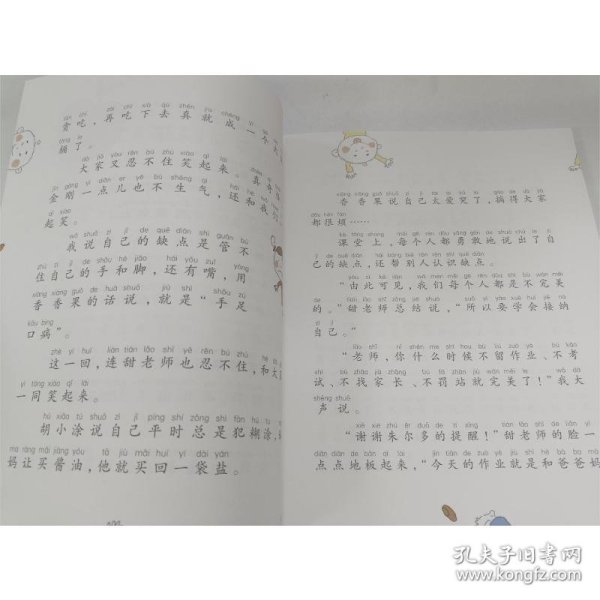 贪吃，再吃下去真就成一个大
桶了。
大家又忍不住笑起来。真
金刚一点儿也不生气，还和我们
起笑。
我说自己的缺点是管不
住自己的手和脚，还有嘴，用
香香果的话说，就是“手足
口病”。
这一回，连甜老师也忍不住，和大
一同笑起来。
胡小涂说自己平时总是犯糊涂，
妈让买酱油，他就买回一袋盐。
香香果说自己太爱哭了，搞得大家
都很烦……
课堂上，每个人都勇敢地说出了自
己的缺点，还帮别人认识缺点。
“由此可见，我们每个人都是不完美
的。”甜老师总结说，“所以要学会接纳
自己。”
“老师，你什么时候不留作业、不考
试、不找家长、不罚站就完美了！”我大
声说。
“谢谢朱尔多的提醒！”甜老师的脸一
点点地板起来，“今天的作业就是和爸爸妈
孔夫子旧书网
www.kongfz.com